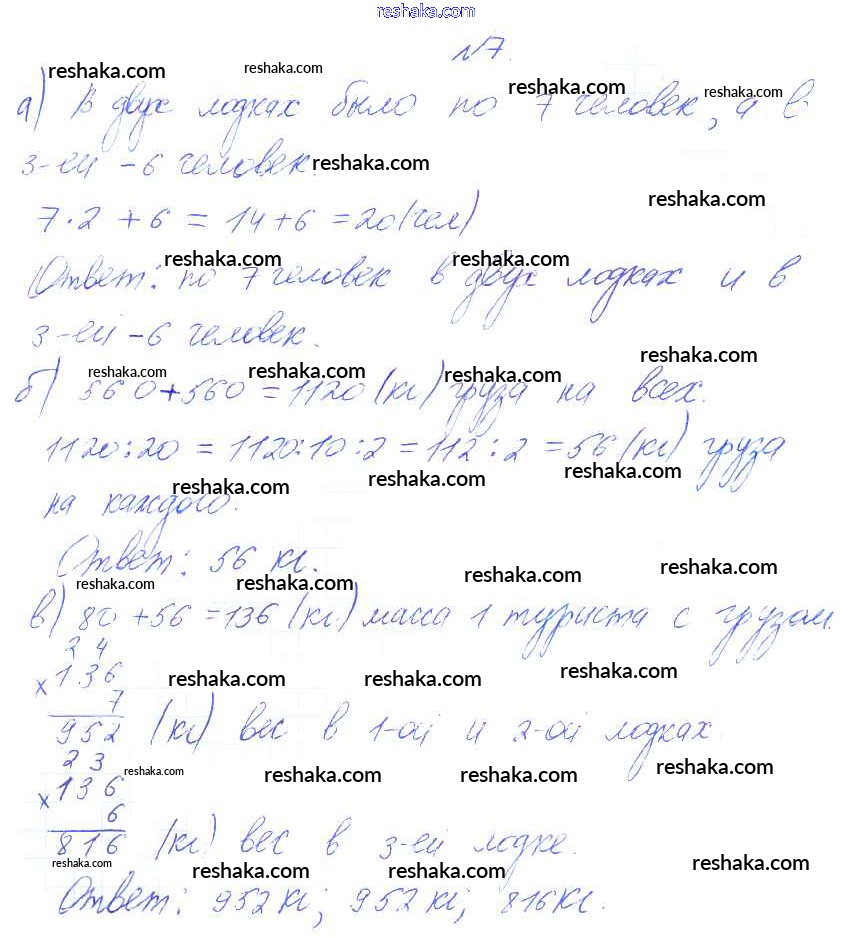 reshaka.com
№7.
reshaka.com reshaka.com reshaka.com reshaka.com
а) В двух лодках было по 7 человек, а в
3-ей - 6 человек. reshaka.com
reshaka.com
7·2 + 6 = 14+6 = 20(чел)
reshaka.com reshaka.com
Ответ: по 7 человек в двух лодках и в
3-ей - 6 человек.
reshaka.com reshaka.com reshaka.com reshaka.com
б) 560+560 = 1120 (кг) груза на всех.
1120:20 = 1120:10:2 = 112:2 = 56 (кг) груза
reshaka.com reshaka.com reshaka.com
на каждого.
Ответ: 56 кг.
reshaka.com reshaka.com reshaka.com reshaka.com
в) 80 +56 =136 (кг) масса 1 туриста с грузом.
2 4
×136
reshaka.com reshaka.com reshaka.com
7
952 (кг) вес в 1-ой и 2-ой лодках.
2 3
reshaka.com reshaka.com reshaka.com reshaka.com
×136
6
816 (кг) вес в 3-ей лодке.
reshaka.com reshaka.com reshaka.com reshaka.com
Ответ: 952 кг; 952 кг; 816 кг.